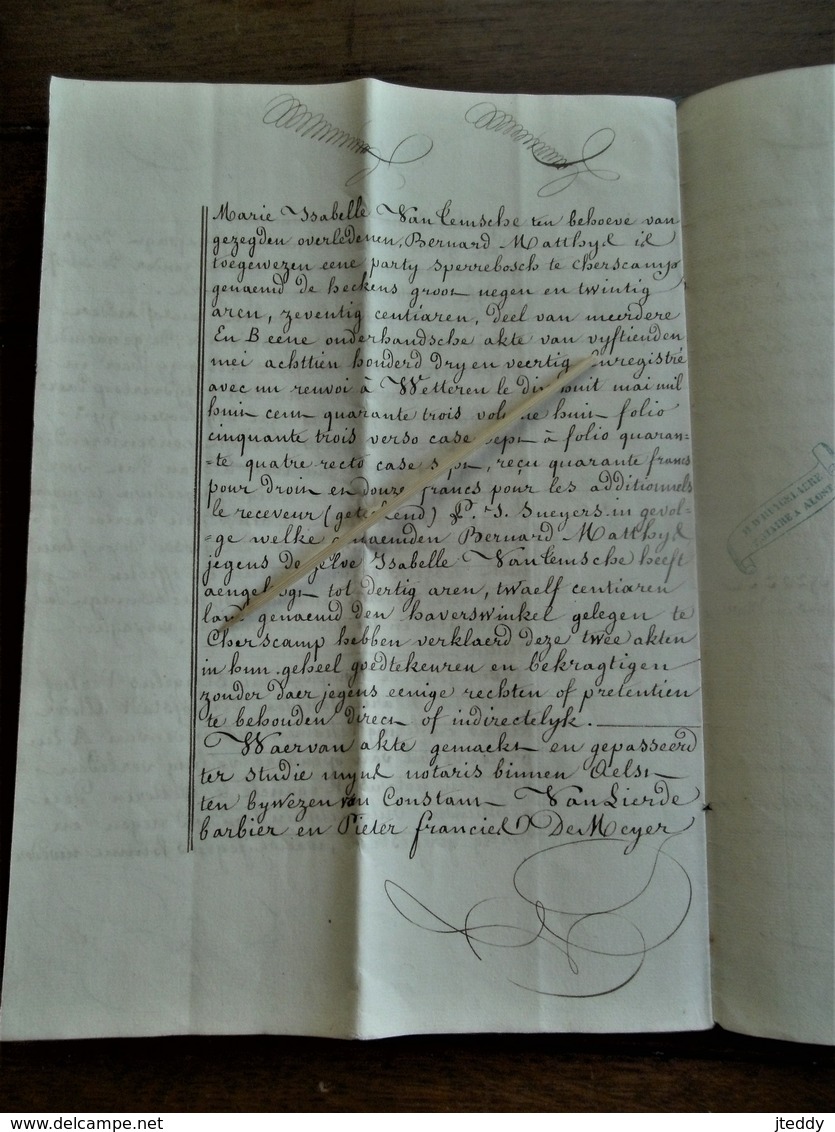 Marie Isabelle Van Lemsche ten behoeve van
gezegden overledenen, Bernard Matthys is
toegewezen eene party sperrebosch te Cherscamp
genaemd de heckens groot negen en twintig
aren, zeventig centiaren, deel van meerdere
En B eene onderhandsche akte van vyftienden
mei achttien honderd dry en veertig enregistré
avec un renvoi à Wetteren le dix huit mai mil
huit cent quarante trois volume huit folio
cinquante trois verso case sept à folio quaran=
=te quatre recto case sept, reçu quarante francs
pour droit en douze francs pour les additionnels
le receveur (geteekend) P. J. Sneyers in gevol=
=ge welke genaemden Bernard Matthys
jegens de zelve Isabelle Van Lemsche heeft
aengelegt tot dertig aren, twaelf centiaren
land genaemd den haverswinkel gelegen te
Cherscamp hebben verklaerd deze twee akten
in hun geheel goedtekeuren en bekragtigen
zonder daer jegens eenige rechten of pretentien
te behouden direct of indirectelyk.
Waervan akte gemaekt en gepasseerd
ter studie myns notaris binnen Aelst
ten bywezen van Constant Van Lierde
barbier en Pieter francies De Meyer
NOTAIRE A ALOST
www.delcampe.net
jteddy